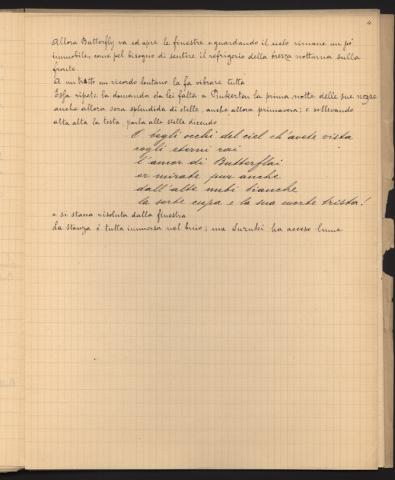 4
Allora Butterfly va ed apre le finestre e guardando il cielo rimane un po'
immobile, come pel bisogno di sentire il refrigerio della brezza notturna sulla
fronte.
A un tratto un ricordo lontano la fa vibrare tutta
Essa ripete la domanda da lei fatta a Pinkerton la prima notte delle sue nozze
anche allora sera splendida di stelle, anche allora primavera; e sollevando
alta alta la testa parla alle stelle dicendo
O begli occhi del ciel ch'avete vista
cogli eterni rai
l'amor di Butterflai
or mirate pur anche
dall'alte nubi bianche
la sorte cupa e la sua morte trista!
e si stacca risoluta dalla finestra
La stanza è tutta immersa nel buio; ma Suzuki ha acceso lume